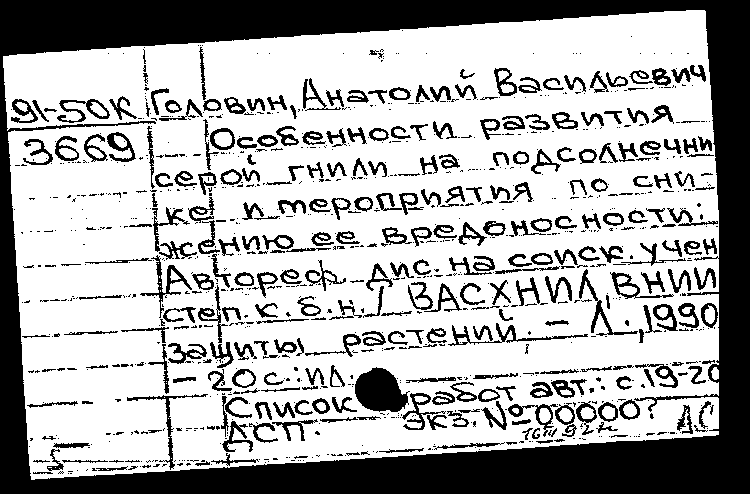 91-50К Головин, Анатолий Васильевич
3669 Особенности развития
серой гнили на подсолнечни
ке и мероприятия по сни-
жению ее вредоносности:
Автореф. дис. на соиск. учен
степ. к. б. н. / ВАСХНИЛ, ВНИИ
защиты растений. – Л., 1990
– 20 с.: ил.
Список работ авт.: с. 19-20
ДСП. Экз. № 00000?
16 III 92 г. ДС
5